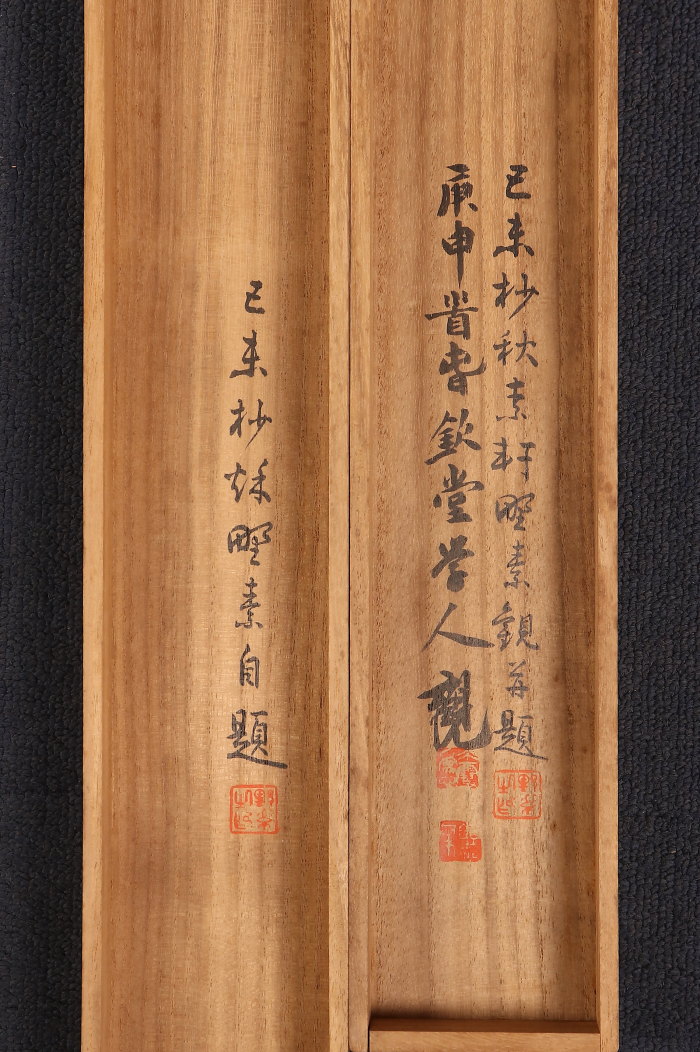 己未杪秋素軒野素観并題
庚申首春欽堂学人観
己未杪秌野素自題